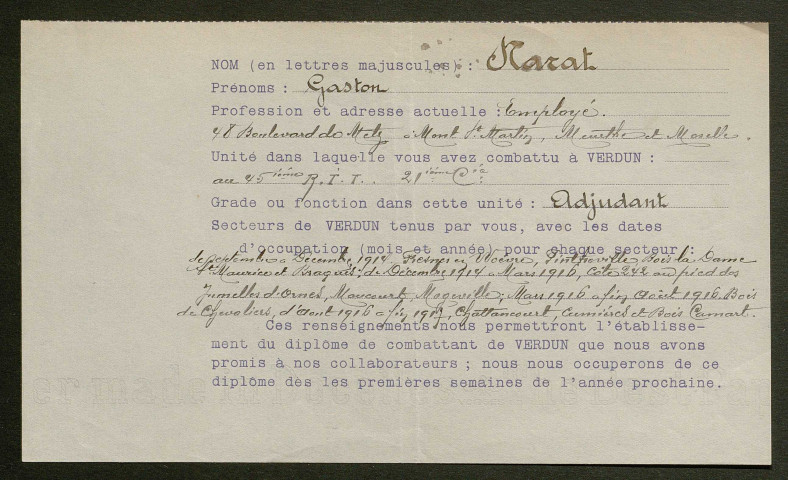 NOM (en lettres majuscules) : Marat
Prénoms : Gaston
Profession et adresse actuelle : Employé.
48 Boulevard de Metz à Mont St Martin, Meurthe et Moselle.
Unité dans laquelle vous avez combattu à VERDUN :
au 45ième R.I.T. 21ième Cie
Grade ou fonction dans cette unité : Adjudant
Secteurs de VERDUN tenus par vous, avec les dates
d'occupation (mois et année) pour chaque secteur :
de Septembre à Décembre 1914 Fresnes en Woëvre, Pintheville Bois la Dame
St Maurice et Braquis, de Décembre 1914 à Mars 1916, Côte 242 au pied des
Jumelles d'Ornes, Maucourt, Mogeville; Mars 1916 à fin Août 1916 Bois
de Chevaliers, d'Août 1916 à fin 1917, Chattancourt, Cumières et Bois Camart.
Ces renseignements nous permettront l'établisse-
ment du diplôme de combattant de VERDUN que nous avons
promis à nos collaborateurs ; nous nous occuperons de ce
diplôme dès les premières semaines de l'année prochaine.